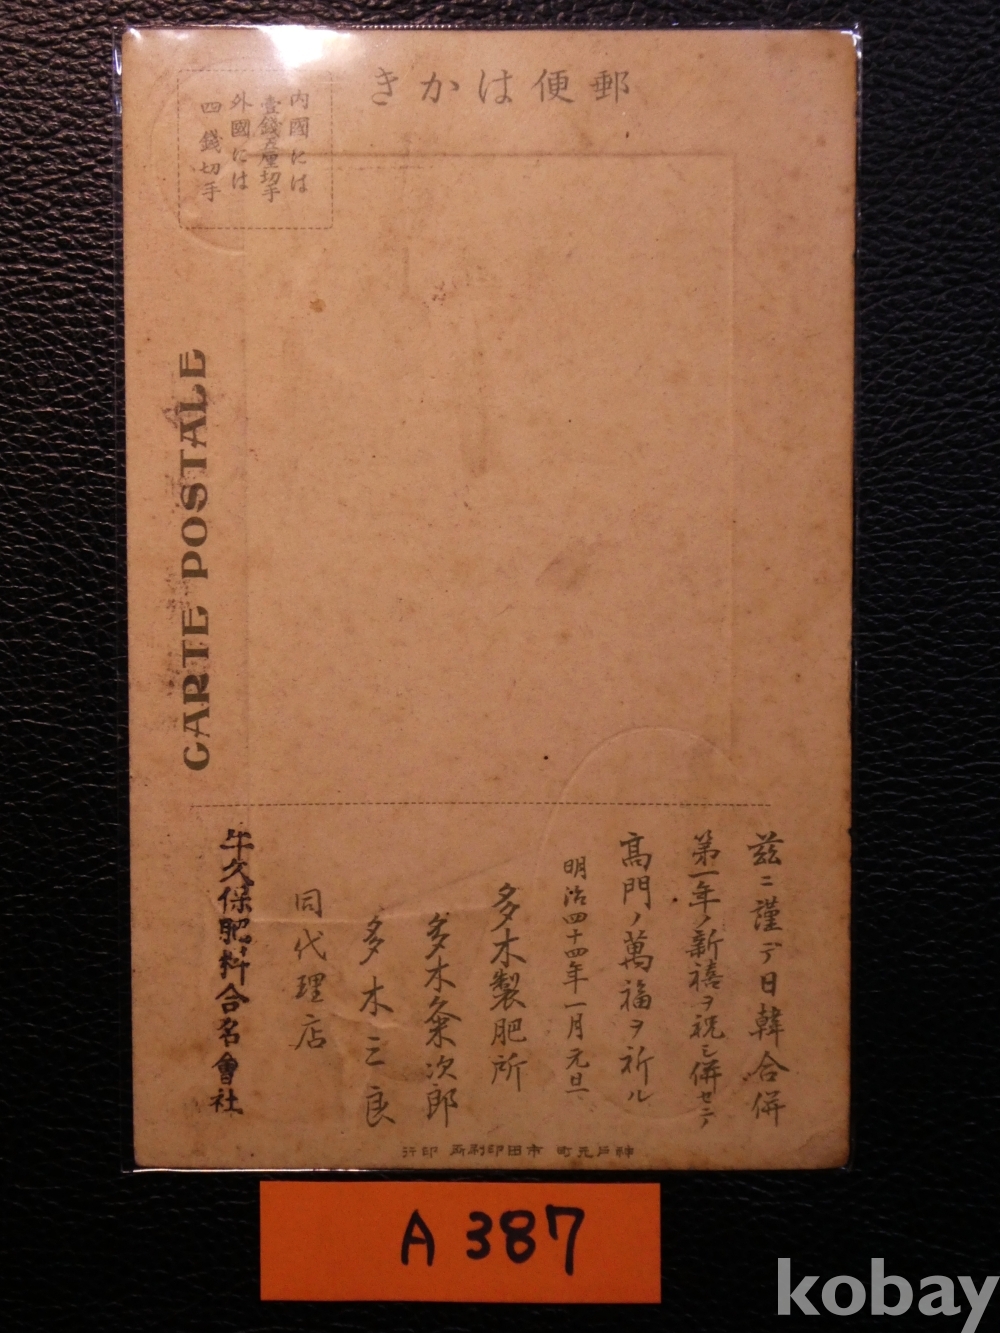 郵便はかき
内國には
壹錢五厘切手
外國には
四錢切手
CARTE POSTALE
茲ニ謹デ日韓合併
第一年ノ新禧ヲ祝シ併セテ
高門ノ萬福ヲ祈ル
明治四十四年一月元旦
多木製肥所
多木粂次郎
多木三良
同代理店
牛久保肥料合名會社
神戸元町 市田印刷所 印行
A387
kobay